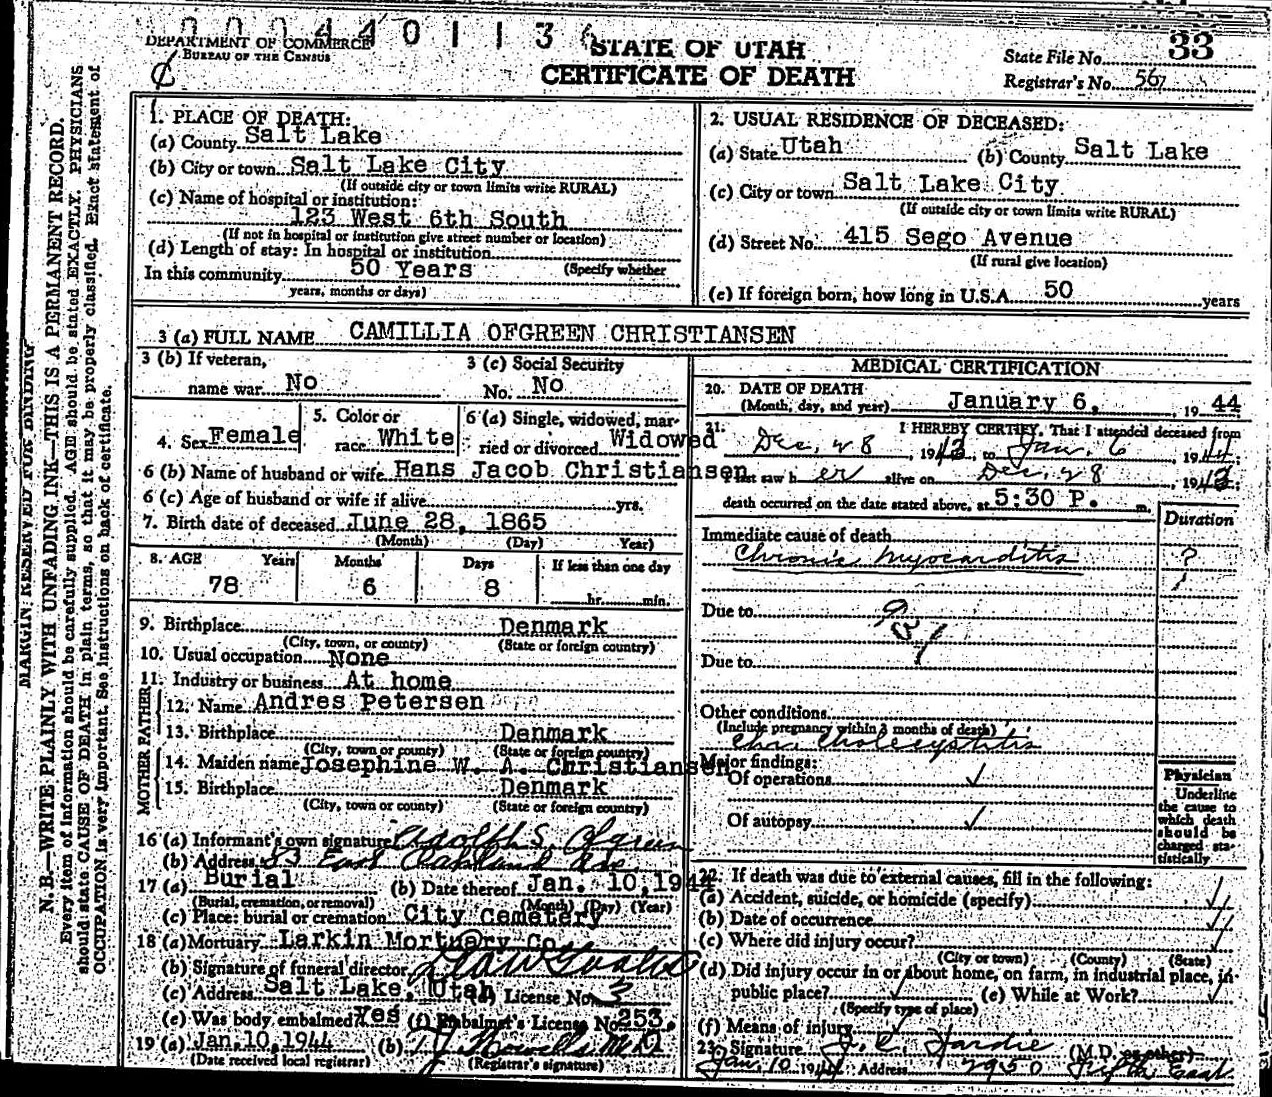 00044011 3
DEPARTMENT OF COMMERCE
BUREAU OF THE CENSUS
STATE OF UTAH
CERTIFICATE OF DEATH
State File No. 33
Registrar's No. 56
MARGIN RESERVED FOR BINDING
N. B.—WRITE PLAINLY WITH UNFADING INK—THIS IS A PERMANENT RECORD.
Every item of information should be carefully supplied. AGE should be stated EXACTLY. PHYSICIANS
should state CAUSE OF DEATH in plain terms, so that it may be properly classified. Exact statement of
OCCUPATION is very important. See instructions on back of certificate.
1. PLACE OF DEATH:
(a) County Salt Lake
(b) City or town Salt Lake City
(If outside city or town limits write RURAL)
(c) Name of hospital or institution:
123 West 6th South
(If not in hospital or institution give street number or location)
(d) Length of stay: In hospital or institution
In this community 50 Years (Specify whether
years, months or days)
2. USUAL RESIDENCE OF DECEASED:
(a) State Utah (b) County Salt Lake
(c) City or town Salt Lake City
(If outside city or town limits write RURAL)
(d) Street No. 415 Sego Avenue
(If rural give location)
(e) If foreign born, how long in U.S.A. 50 years
3 (a) FULL NAME CAMILLIA OFGREEN CHRISTIANSEN
3 (b) If veteran, 3 (c) Social Security
name war No No. No
4. Sex Female
5. Color or
race White
6 (a) Single, widowed, mar-
ried or divorced Widowed
6 (b) Name of husband or wife Hans Jacob Christiansen
6 (c) Age of husband or wife if alive yrs.
7. Birth date of deceased June 28, 1865
(Month) (Day) Year)
8. AGE Years Months Days If less than one day
78 6 8 hr. min.
9. Birthplace Denmark
(City, town, or county) (State or foreign country)
10. Usual occupation None
11. Industry or business At home
FATHER
12. Name Andres Petersen
13. Birthplace Denmark
(City, town or county) (State or foreign country)
MOTHER
14. Maiden name Josephine W. A. Christiansen
15. Birthplace Denmark
(City, town or county) (State or foreign country)
16 (a) Informant's own signature Adolph S. Ofgreen
(b) Address 53 East Oakland Ave
17 (a) Burial (b) Date thereof Jan. 10, 1944
(Burial, cremation, or removal) (Month) (Day) (Year)
(c) Place: burial or cremation City Cemetery
18 (a) Mortuary Larkin Mortuary Co
(b) Signature of funeral director
(c) Address Salt Lake, Utah (d) License No. 3
(e) Was body embalmed? Yes (f) Embalmer's License No. 253.
19 (a) Jan. 10, 1944 (b) Howells M.D.
(Date received local registrar) (Registrar's signature)
MEDICAL CERTIFICATION
20. DATE OF DEATH
(Month, day, and year) January 6, 1944
21. I HEREBY CERTIFY, That I attended deceased from
Dec. 28, 1943, to Jan. 6, 1944;
I last saw her alive on Dec. 28, 1943;
death occurred on the date stated above, at 5:30 P. m.
Duration
Immediate cause of death
Chronic Myocarditis ?
Due to
Due to
Other conditions
(Include pregnancy within 3 months of death)
Chr. Cholecystitis
Major findings:
Of operations
Of autopsy
Physician
Underline
the cause to
which death
should be
charged sta-
tistically
22. If death was due to external causes, fill in the following:
(a) Accident, suicide, or homicide (specify)
(b) Date of occurrence
(c) Where did injury occur?
(City or town) (County) (State)
(d) Did injury occur in or about home, on farm, in industrial place, in
public place? (e) While at Work?
(Specify type of place)
(f) Means of injury
23. Signature J. C. Hardie (M.D. or other)
Jan. 10 1944 Address 2950 Fifth East